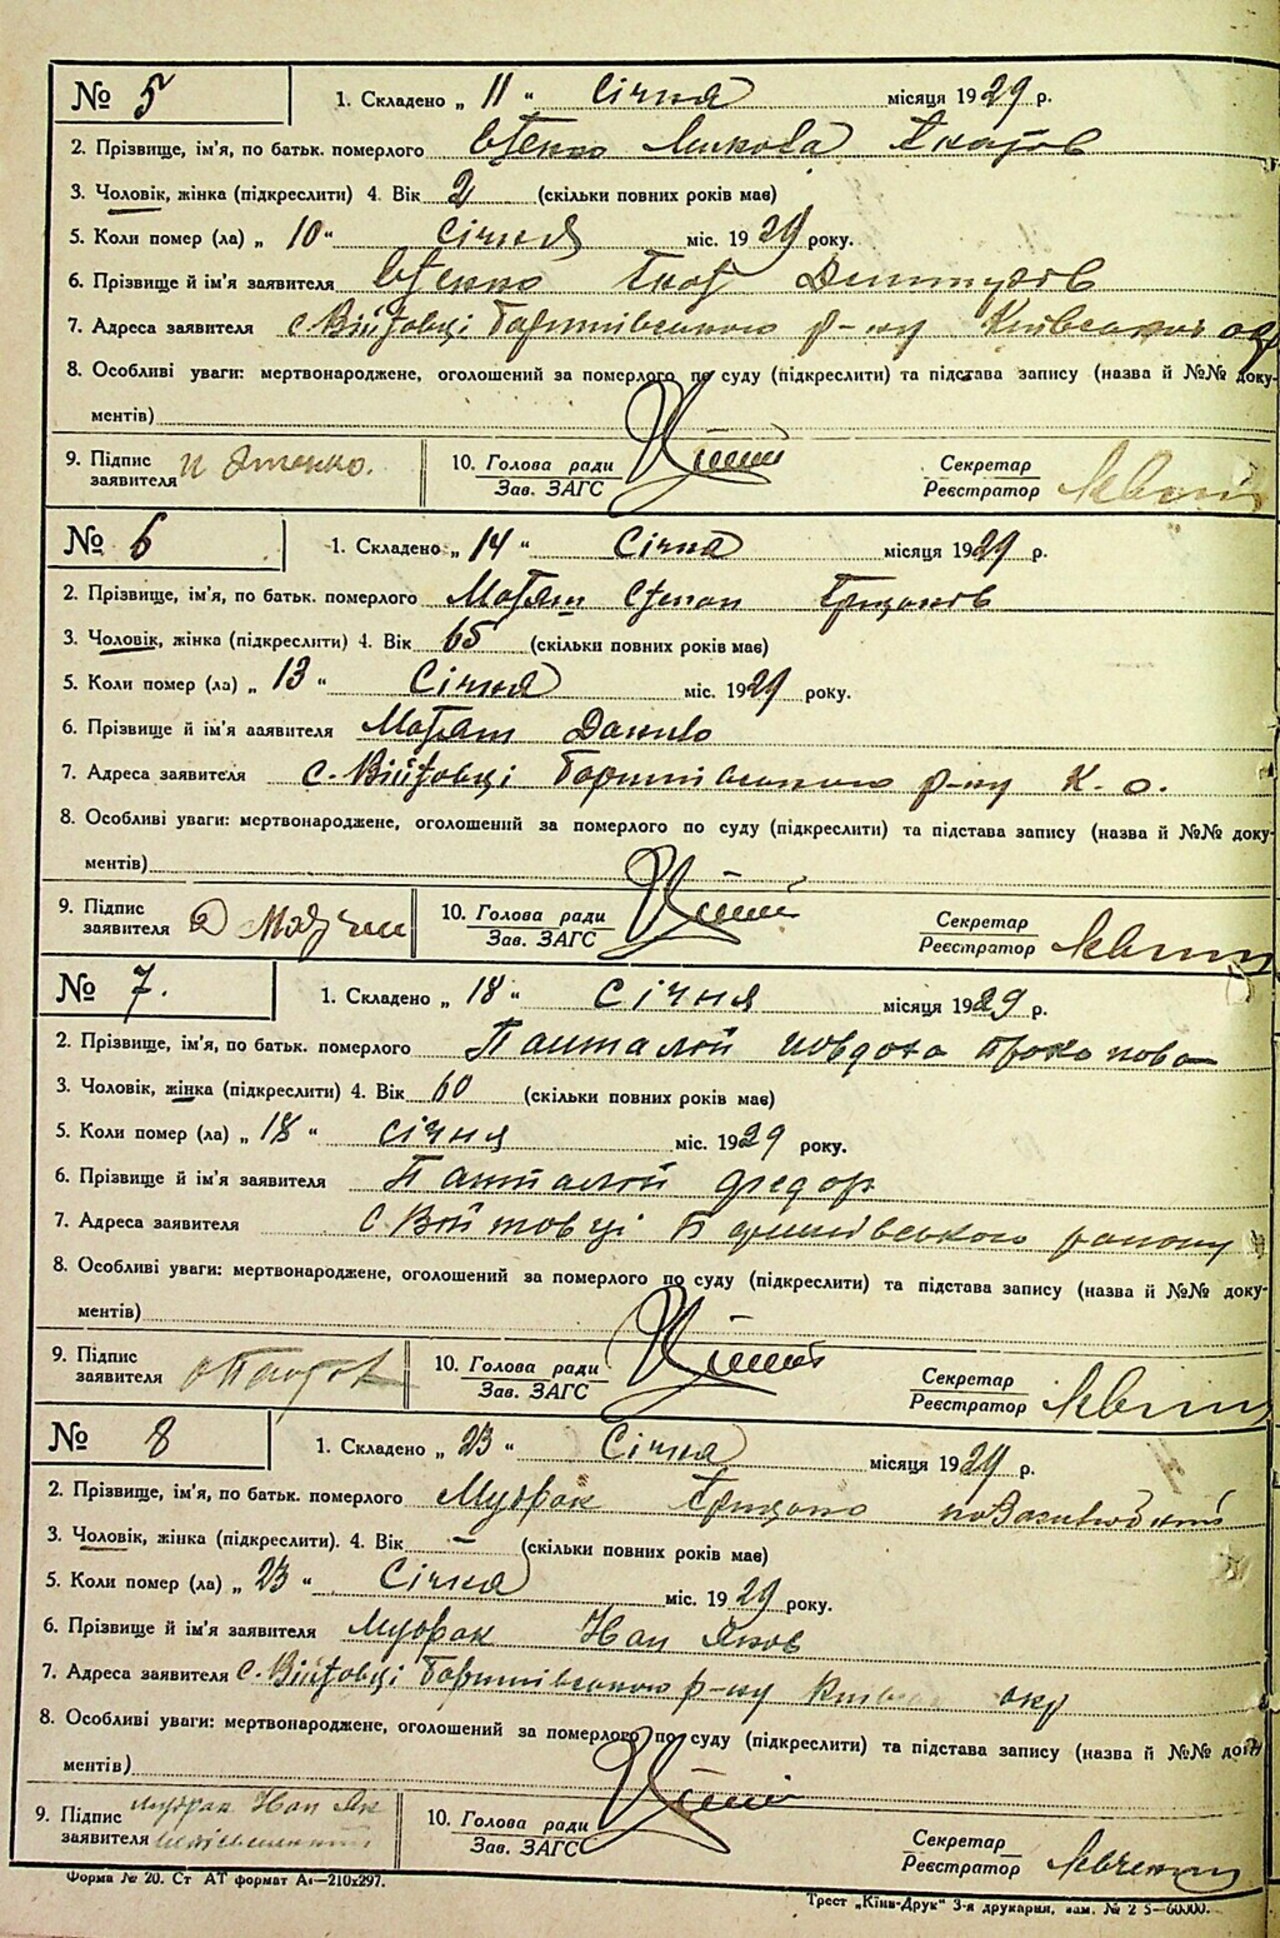 № 5 1. Складено „ 11 “ Січня місяця 1929 р.
2. Прізвище, ім'я, по батьк. померлого Микола
3. Чоловік, жінка (підкреслити) 4. Вік 2 (скільки повних років має)
5. Коли помер (ла) „ 10 “ Січня міс. 1929 року.
6. Прізвище й ім'я заявителя
7. Адреса заявителя с. Війтовці Баришівського р-ну Київської окр
8. Особливі уваги: мертвонароджене, оголошений за померлого по суду (підкреслити) та підстава запису (назва й №№ доку-
ментів)
9. Підпис заявителя 10. Голова ради Зав. ЗАГС Секретар Реєстратор
№ 6 1. Складено „ 14 “ Січня місяця 1929 р.
2. Прізвище, ім'я, по батьк. померлого Матяш Степан Грицьків
3. Чоловік, жінка (підкреслити) 4. Вік 65 (скільки повних років має)
5. Коли помер (ла) „ 13 “ Січня міс. 1929 року.
6. Прізвище й ім'я заявителя Матяш Данило
7. Адреса заявителя с. Війтовці Баришівського р-ну К. о.
8. Особливі уваги: мертвонароджене, оголошений за померлого по суду (підкреслити) та підстава запису (назва й №№ доку-
ментів)
9. Підпис заявителя Д 10. Голова ради Зав. ЗАГС Секретар Реєстратор
№ 7. 1. Складено „ 18 “ Січня місяця 1929 р.
2. Прізвище, ім'я, по батьк. померлого Панталій Ювдоха Прокопова
3. Чоловік, жінка (підкреслити) 4. Вік 60 (скільки повних років має)
5. Коли помер (ла) „ 18 “ січня міс. 1929 року.
6. Прізвище й ім'я заявителя Панталій Федор
7. Адреса заявителя с. Войтовці Баришівського району
8. Особливі уваги: мертвонароджене, оголошений за померлого по суду (підкреслити) та підстава запису (назва й №№ доку-
ментів)
9. Підпис заявителя 10. Голова ради Зав. ЗАГС Секретар Реєстратор
№ 8 1. Складено „ 23 “ Січня місяця 1929 р.
2. Прізвище, ім'я, по батьк. померлого Мудрак Грицько
3. Чоловік, жінка (підкреслити). 4. Вік – (скільки повних років має)
5. Коли помер (ла) „ 23 “ Січня міс. 1929 року.
6. Прізвище й ім'я заявителя Мудрак Яков
7. Адреса заявителя с. Війтовці Баришівського р-ну Київськ окр
8. Особливі уваги: мертвонароджене, оголошений за померлого по суду (підкреслити) та підстава запису (назва й №№ доку-
ментів)
9. Підпис заявителя Мудрак 10. Голова ради Зав. ЗАГС Секретар Реєстратор Левченко
Форма № 20. Ст АТ формат А₄—210x297.
Трест „Київ-Друк“ 3-я друкарня, зам. № 2 5—60000.